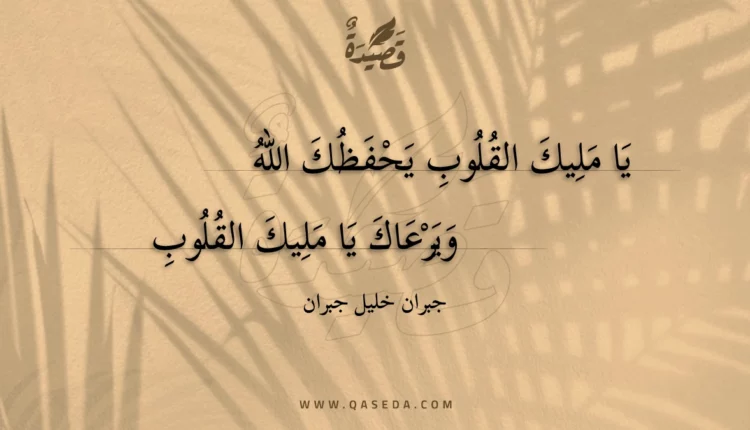 قَصِيْدَةٌ
يَا مَلِيكَ القُلُوبِ يَحْفَظُكَ اللهُ
وَيَرْعَاكَ يَا مَلِيكَ القُلُوبِ
جبران خليل جبران
WWW.QASEDA.COM